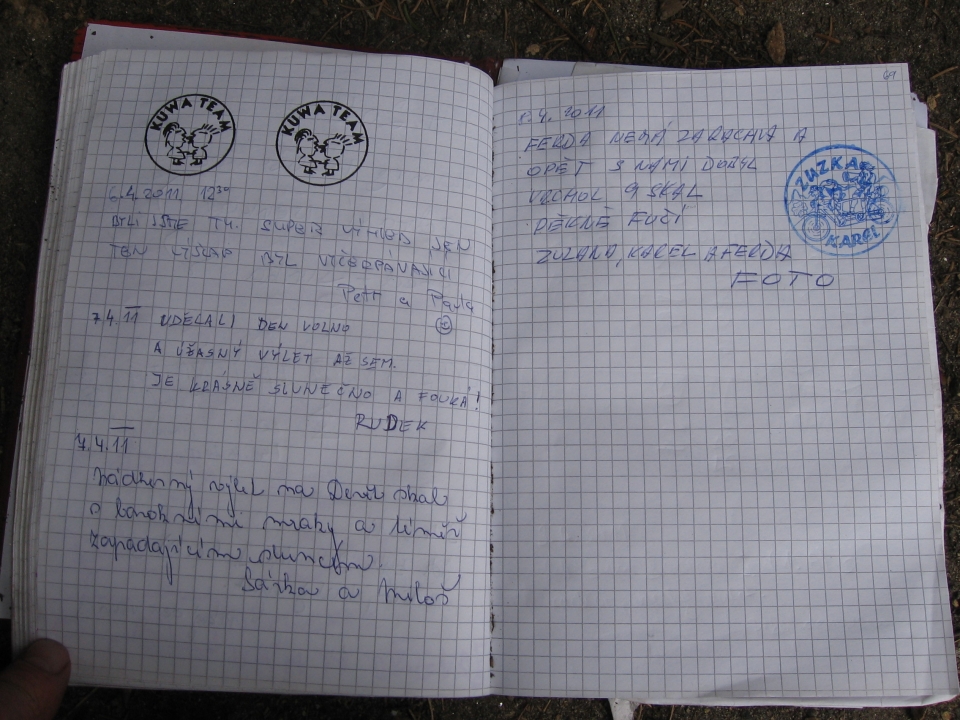 KUWA TEAM
KUWA TEAM
6.4.2011 12³⁰
BYLI JSME TU. SUPER VÝHLED JEN
TEN VÝSTUP BYL VYČERPÁVAJÍCÍ
Petr a
7.4.11 UDĚLALI DEN VOLNO
A ÚŽASNÝ VÝLET AŽ SEM.
JE KRÁSNĚ SLUNEČNO A FOUKÁ!
RUDEK
7.4.11
Nádherný výlet na Devět skal
s barokními mraky a téměř
zapadajícím sluncem.
Šárka a Miloš
64
8.4.2011
FERDA NEMÁ ZADACHU A
OPĚT S NAMI DOBYL
VRCHOL 9 SKAL
PĚKNĚ FUČÍ
KAREL A FERDA
FOTO
ZUZKA
KAREL